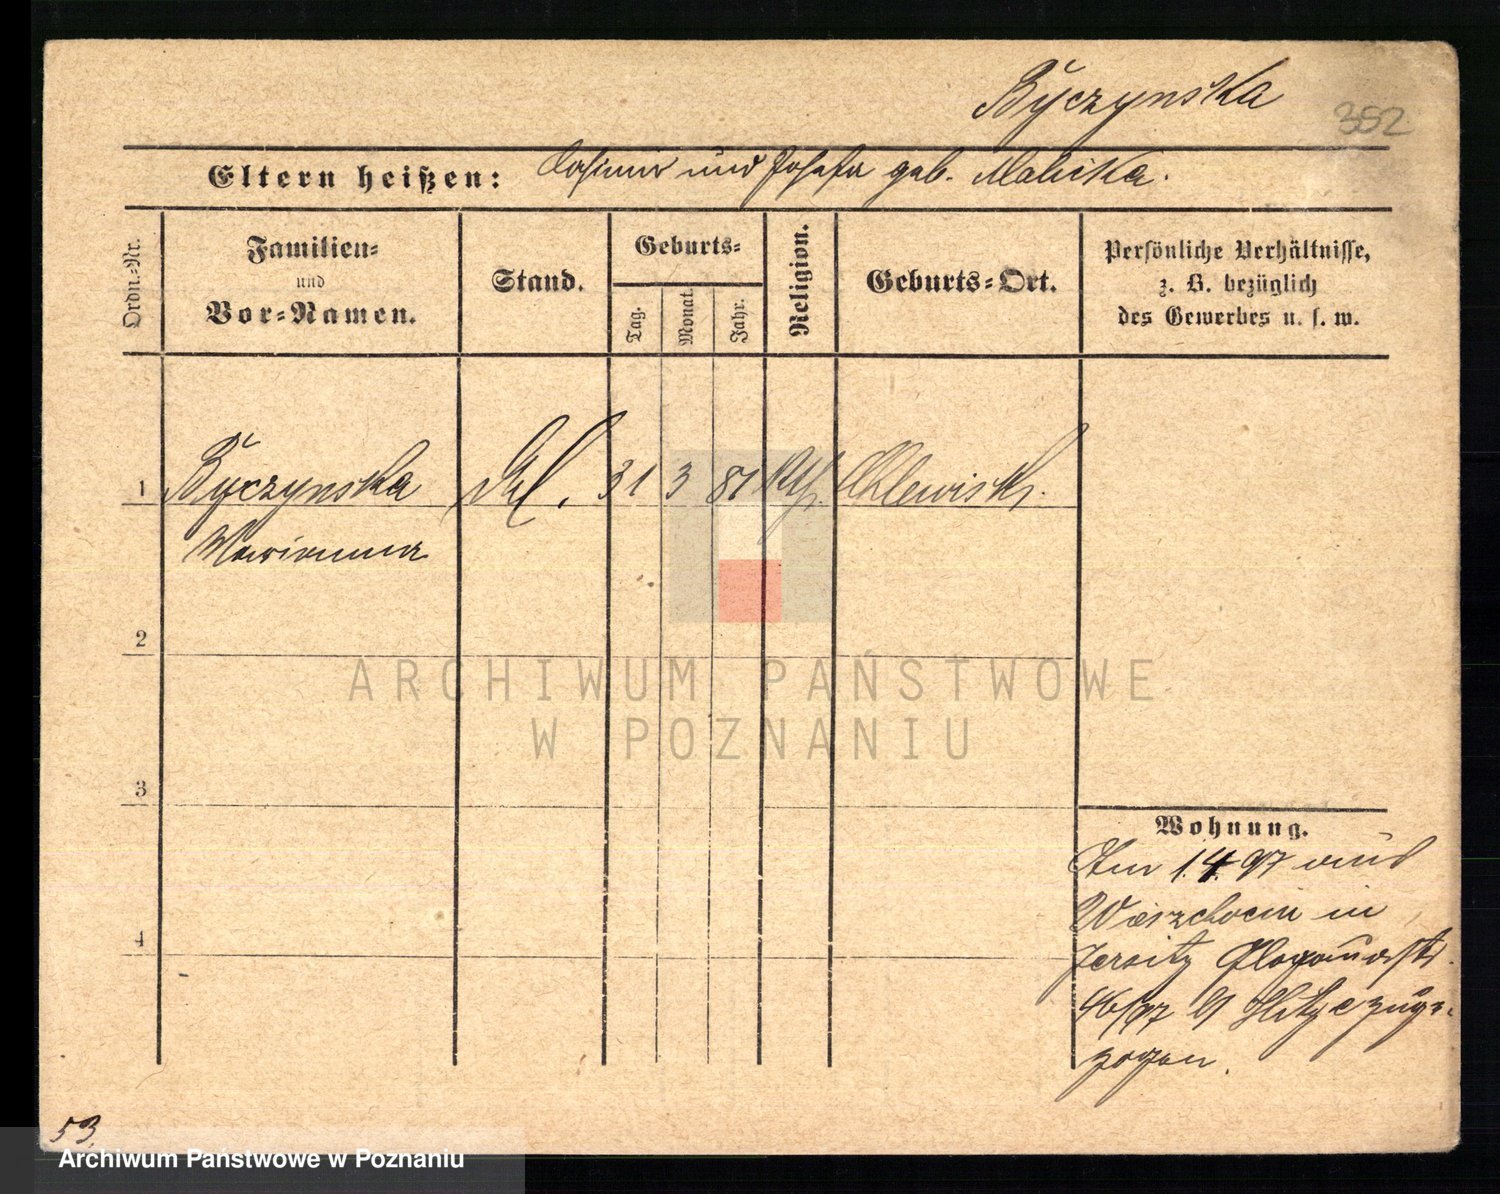 Byczynska
352
Eltern heißen: Casimir und Josefa geb. Malicka.
Ordn.=Nr.
Familien=
und
Vor=Namen.
Stand.
Geburts=
Tag.
Monat.
Jahr.
Religion.
Geburts=Ort.
Persönliche Verhältnisse,
z. B. bezüglich
des Gewerbes u. s. w.
1 Byczynska 31 3 81 Chlewisk.
Marianna
2
3
4
ARCHIWUM PAŃSTWOWE
W POZNANIU
Wohnung.
Am 1.4.97 aus
in
Jersitz Glogauerstr.
46/97 zuge-
zogen.
53
Archiwum Państwowe w Poznaniu